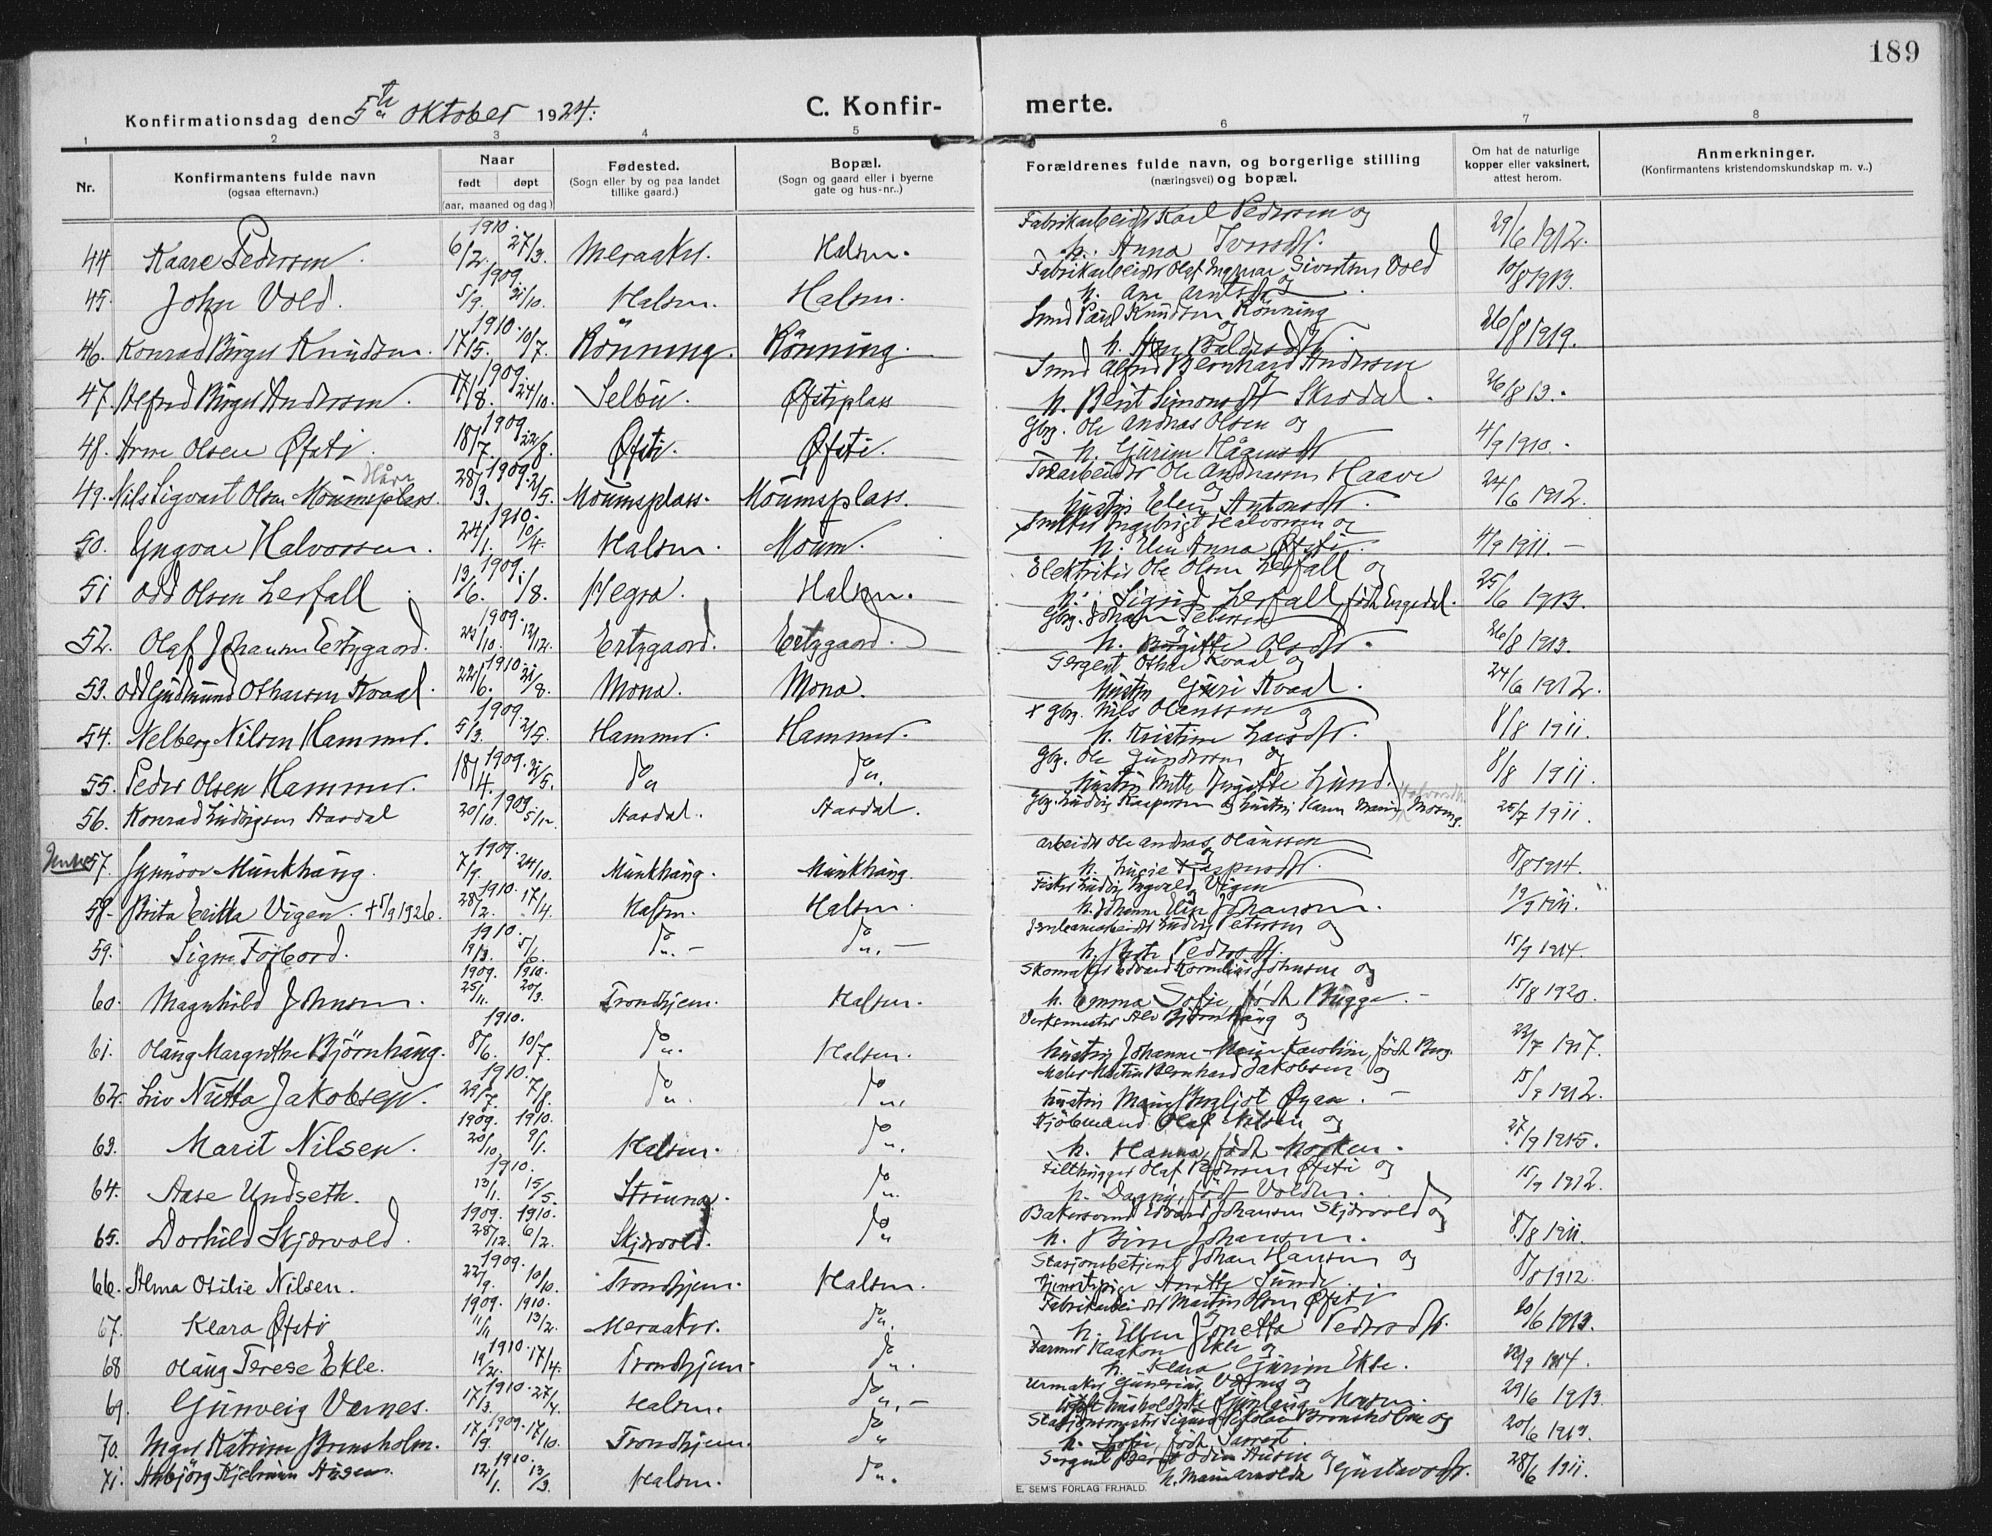 189
Konfirmationsdag den 5te oktober 1924.
C. Konfirmerte.
1 2 3 4 5 6 7 8
Nr.
Konfirmantens fulde navn
(ogsaa efternavn.)
Naar
født døpt
(aar, maaned og dag)
Fødested.
(Sogn eller by og paa landet
tillike gaard.)
Bopæl.
(Sogn og gaard eller i byerne
gate og hus-nr..)
Forældrenes fulde navn, og borgerlige stilling
(næringsvei) og bopæl.
Om hat de naturlige
kopper eller vaksinert,
attest herom.
Anmerkninger.
(Konfirmantens kristendomskundskap m. v..)
44 Kaare Pedersen. 1910. 6/2. 27/3. Meraaker. Halsen. Fabrikarbeider Karl Pedersen og h. Anna 29/6 1912.
45. John Vold. 1909. 5/9. 31/10. Halsen. Halsen. Fabrikarbeider Olaf Ingvar Sivertsen Vold og h. 10/8 1913.
46. Konrad Birger Knudsen. 1910. 17/5. 10/7. Rönning. Rönning. Smed Paul Knudsen Rönning og h. 26/8 1919.
47. Alfred Birger Andersen. 1909. 17/8. 24/10. Selbu. Øfstiplass Smed Alfred Bernhard Andersen og h. Berit Simonsdtr Skrødal. 26/8 13.
48. Arne Olsen Øfsti. 1909. 18/7. 22/8. Øfsti. Øfsti. Gbr. Ole Andreas Olsen og h. Gurine 4/9 1910.
49. Nils Sigvart Olsen Moumsplass. 1909. 28/3. 2/5. Moumsplass. Moumsplass. Ole Andreassen Haave og hustru Elen Antonsdtr. 24/6 1912.
50. Yngvar Halvorsen. 1910. 24/1. 10/4. Halsen. Moum. Ingebrigt Halvorsen og h. Elen Anna Øfsti. 4/9 1911.
51 Odd Olsen Lerfall. 1909. 13/6. 1/8. Hegra. Halsen. Elektriker Ole Olsen Lerfall og h. Sigrid Lerfall, født Engsdal. 25/6 1913.
52. Olaf Johansen Ertzgaard. 1909. 24/10. 12/12. Ertzgaard. Ertzgaard. Gbr. Johan Petersen og h. Birgitte Olsdtr. 26/8 1913.
53. Odd Gudmund Otharsen Kvaal. 1910. 22/6. 21/8. Mona. Mona. Sergent Othar Kvaal og hustru Guri Kvaal. 24/6 1912.
54. Nelberg Nilsen Hammer. 1909. 5/3. 2/5. Hammer. Hammer. Gbr. Nils Olaussen og h. Kristine Larsdtr. 8/8 1911.
55. Peder Olsen Hammer. 1909. 18/4. 31/5. do do. Gbr. Ole Gundersen og hustru Mette Birgitte Lund. 8/8 1911.
56. Konrad Ludvigsen Aasdal 1909. 20/10. 5/12. Aasdal. Aasdal. Gbr. Ludvig Kaspersen og hustru Karen Marie 25/7 1911.
57. Synnöve Munkhaug. 1909. 7/9. 24/10. Munkhaug. Munkhaug. Arbeider Ole Andreas Olaussen og h. Kaspersdtr. 8/8 1914.
58. Brita Eritta Vigen. + 5/9 1926. 1910. 28/2. 17/4. Halsen. Halsen. Fisker Ludvig Ingvald Vigen og h. Johanne Johansen.
59. Signe Fosbord. 1910. 19/3. 5/6. do. do. Jernbanearbeider Ludvig Petersen og h. Pedersdtr. 15/9 1914.
60. Magnhild Johnsen. 1909. 25/11. 1910. 20/3. Trondhjem. Halsen. Skomaker Edvard Kornelius Johnsen og h. Emma Sofie, født Bugge. 15/8 1920.
61. Olaug Margrethe Björnhaug. 1910. 8/6. 10/7. do. Halsen. Verksmester Alv Björnhaug og hustru Johanne Marie Karoline, født Berg. 22/7 1917.
62. Liv Nutta Jakobsen. 1910. 29/7. 7/8. do. do. Maler Martin Bernhard Jakobsen og hustru Marie Bergljot Øyan. 15/9 1912.
63. Marit Nilsen. 1909. 20/10. 1910. 9/1. Halsen. do. Kjöbmand Olaf Nilsen og h. Hanna, født Morken. 27/9 1915.
64. Aase Undseth. 1910. 13/1. 15/5. Strinna. do. Olaf Pedersen Øfsti og h. Dagny, født Volden. 15/9 1912.
65. Dorhild Skjærvold. 1909. 28/12. 1910. 6/2. Skjærvold. do Bakersvend Edvard Johansen Skjærvold og h. Johansen. 8/8 1911.
66. Alma Otilie Nilsen. 1909. 22/9. 10/10. Trondhjem. Halsen. Stasjonsbetjent Johan Hansen og tjenestepige Anette Lunde. 8/8 1912.
67. Klara Øfsti 1909. 11/11. 1910. 13/2. Meraaker. do. Fabrikarbeider Martin Olsen Øfsti og h. Ellen Jonetta Pedersdtr. 20/6 1913.
68 Olaug Terese Ekle. 1910. 19/2. 17/4. Trondhjem. do. Farmer Haakon Ekle og h. Klara Gurine Ekle. 22/9 1914.
69. Gunveig Værnes. 1910. 17/3. 27/4. Halsen. do. Urmaker Gunerius Værnes og 29/6 1913.
70. Inger Katrine Brensholm. 1909. 17/9. 17/10. Trondhjem. do Stasjonsmester Sigurd Nikolai Brensholm og h. Sofie, født 20/6 1913.
71. Asbjörg Kjelrun Ausen. 1910. 12/1. 13/3. Halsen. do. Odin Ausen og h. Marie Arnolda Gustavsdtr. 28/6 1911.
E. SEM'S FORLAG FR.HALD.